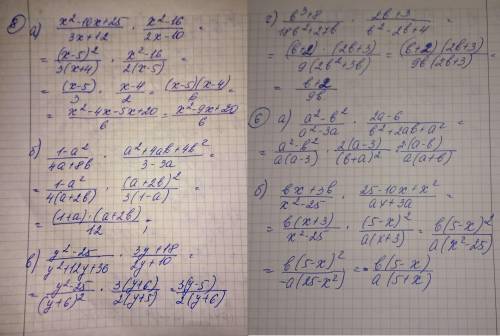 ⑤ а) (x²-10x+25)/(3x+12) · (x²-16)/(2x-10) =
= (x-5)²/(3(x+4)) · (x²-16)/(2(x-5)) =
= (x-5)/3 · (x-4)/2 = (x-5)(x-4)/6 =
= (x²-4x-5x+20)/6 = (x²-9x+20)/6
б) (1-a²)/(4a+8b) · (a²+4ab+4b²)/(3-3a) =
= (1-a²)/(4(a+2b)) · (a+2b)²/(3(1-a)) =
= ((1+a)·(a+2b))/12 ;
в) (y²-25)/(y²+12y+36) · (3y+18)/(2y+10) =
= (y²-25)/(y+6)² · 3(y+6)/(2(y+5)) = 3(y-5)/(2(y+6))
г) (b³+8)/(18b²+27b) · (2b+3)/(b²-2b+4) =
= ((b+2)·(2b+3))/(9(2b²+3b)) = ((b+2)(2b+3))/(9b(2b+3)) =
= (b+2)/9b
⑥ а) (a²-b²)/(a²-3a) · (2a-6)/(b²+2ab+a²) =
= (a²-b²)/(a(a-3)) · 2(a-3)/(b+a)² = 2(a-b)/(a(a+b))
б) (bx+3b)/(x²-25) · (25-10x+x²)/(ax+3a) =
= b(x+3)/(x²-25) · (5-x)²/(a(x+3)) = b(5-x)²/(a(x²-25)) =
= b(5-x)²/(-a(25-x²)) = - b(5-x)/(a(5+x))